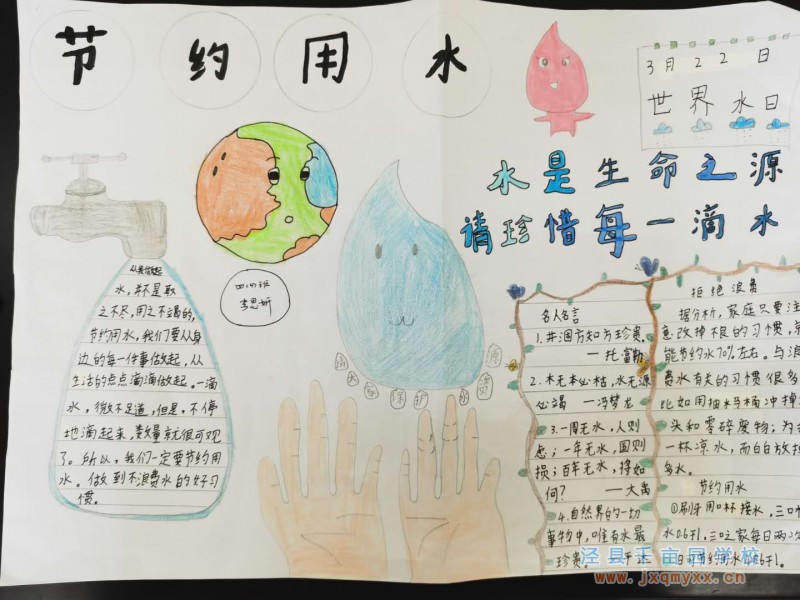 节约用水
3月22日
世界水日
水是生命之源
请珍惜每一滴水
四(4)班
李思妍
从我做起
水，并不是取
之不尽，用之不竭的，
节约用水，我们要从身
边的每一件事做起，从
生活的点点滴滴做起。一滴
水，微不足道，但是，不停
地滴起来，数量就很可观
了。所以，我们一定要节约用
水。做到不浪费水的好习
惯。
保护水资源
名人名言
1.井涸方知方珍贵。
—托·富勒
2.木无本必枯，水无源
必竭 —冯梦龙
3.一周无水，人则
虑；一年无水，国则
损；百年无水，将如
何？ —大禹
4.自然界的一切
事物中，唯有水最
珍贵。
拒绝浪费
据分析，家庭只要注
意改掉不良的习惯，
能节约水70%左右。与浪
费水有关的习惯很多
比如用抽水马桶冲掉
头和零碎废物；为
一杯凉水，而白白放掉
多水。
节约用水
①刷牙用口杯接水，三口
水0.6升。三口之家每日两次
泾县千亩园学校
www.jxqmyxx.cn